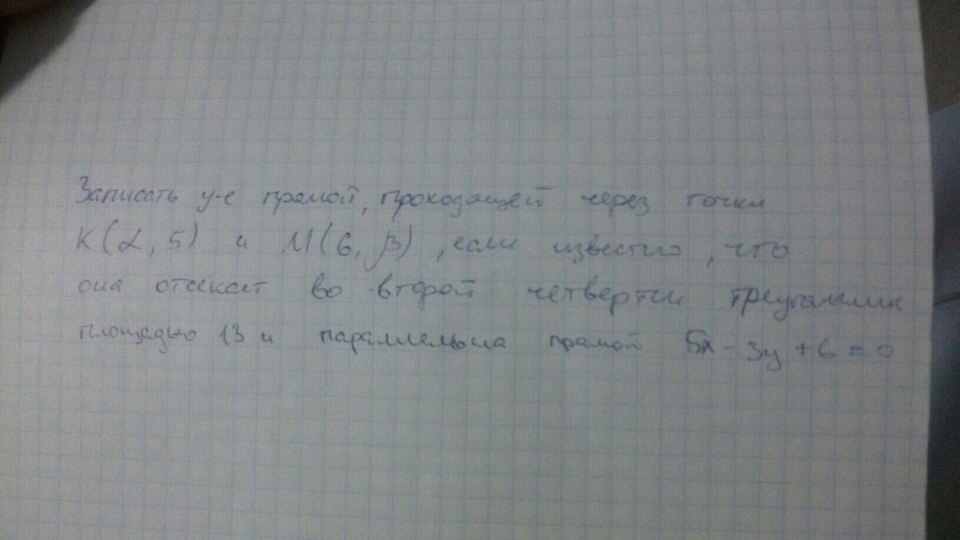 Записать ур-е прямой, проходящей через точки
K(α, 5) и M(6, β), если известно, что
она отсекает во второй четверти треугольник
площадью 13 и параллельна прямой 5x - 3y + 6 = 0